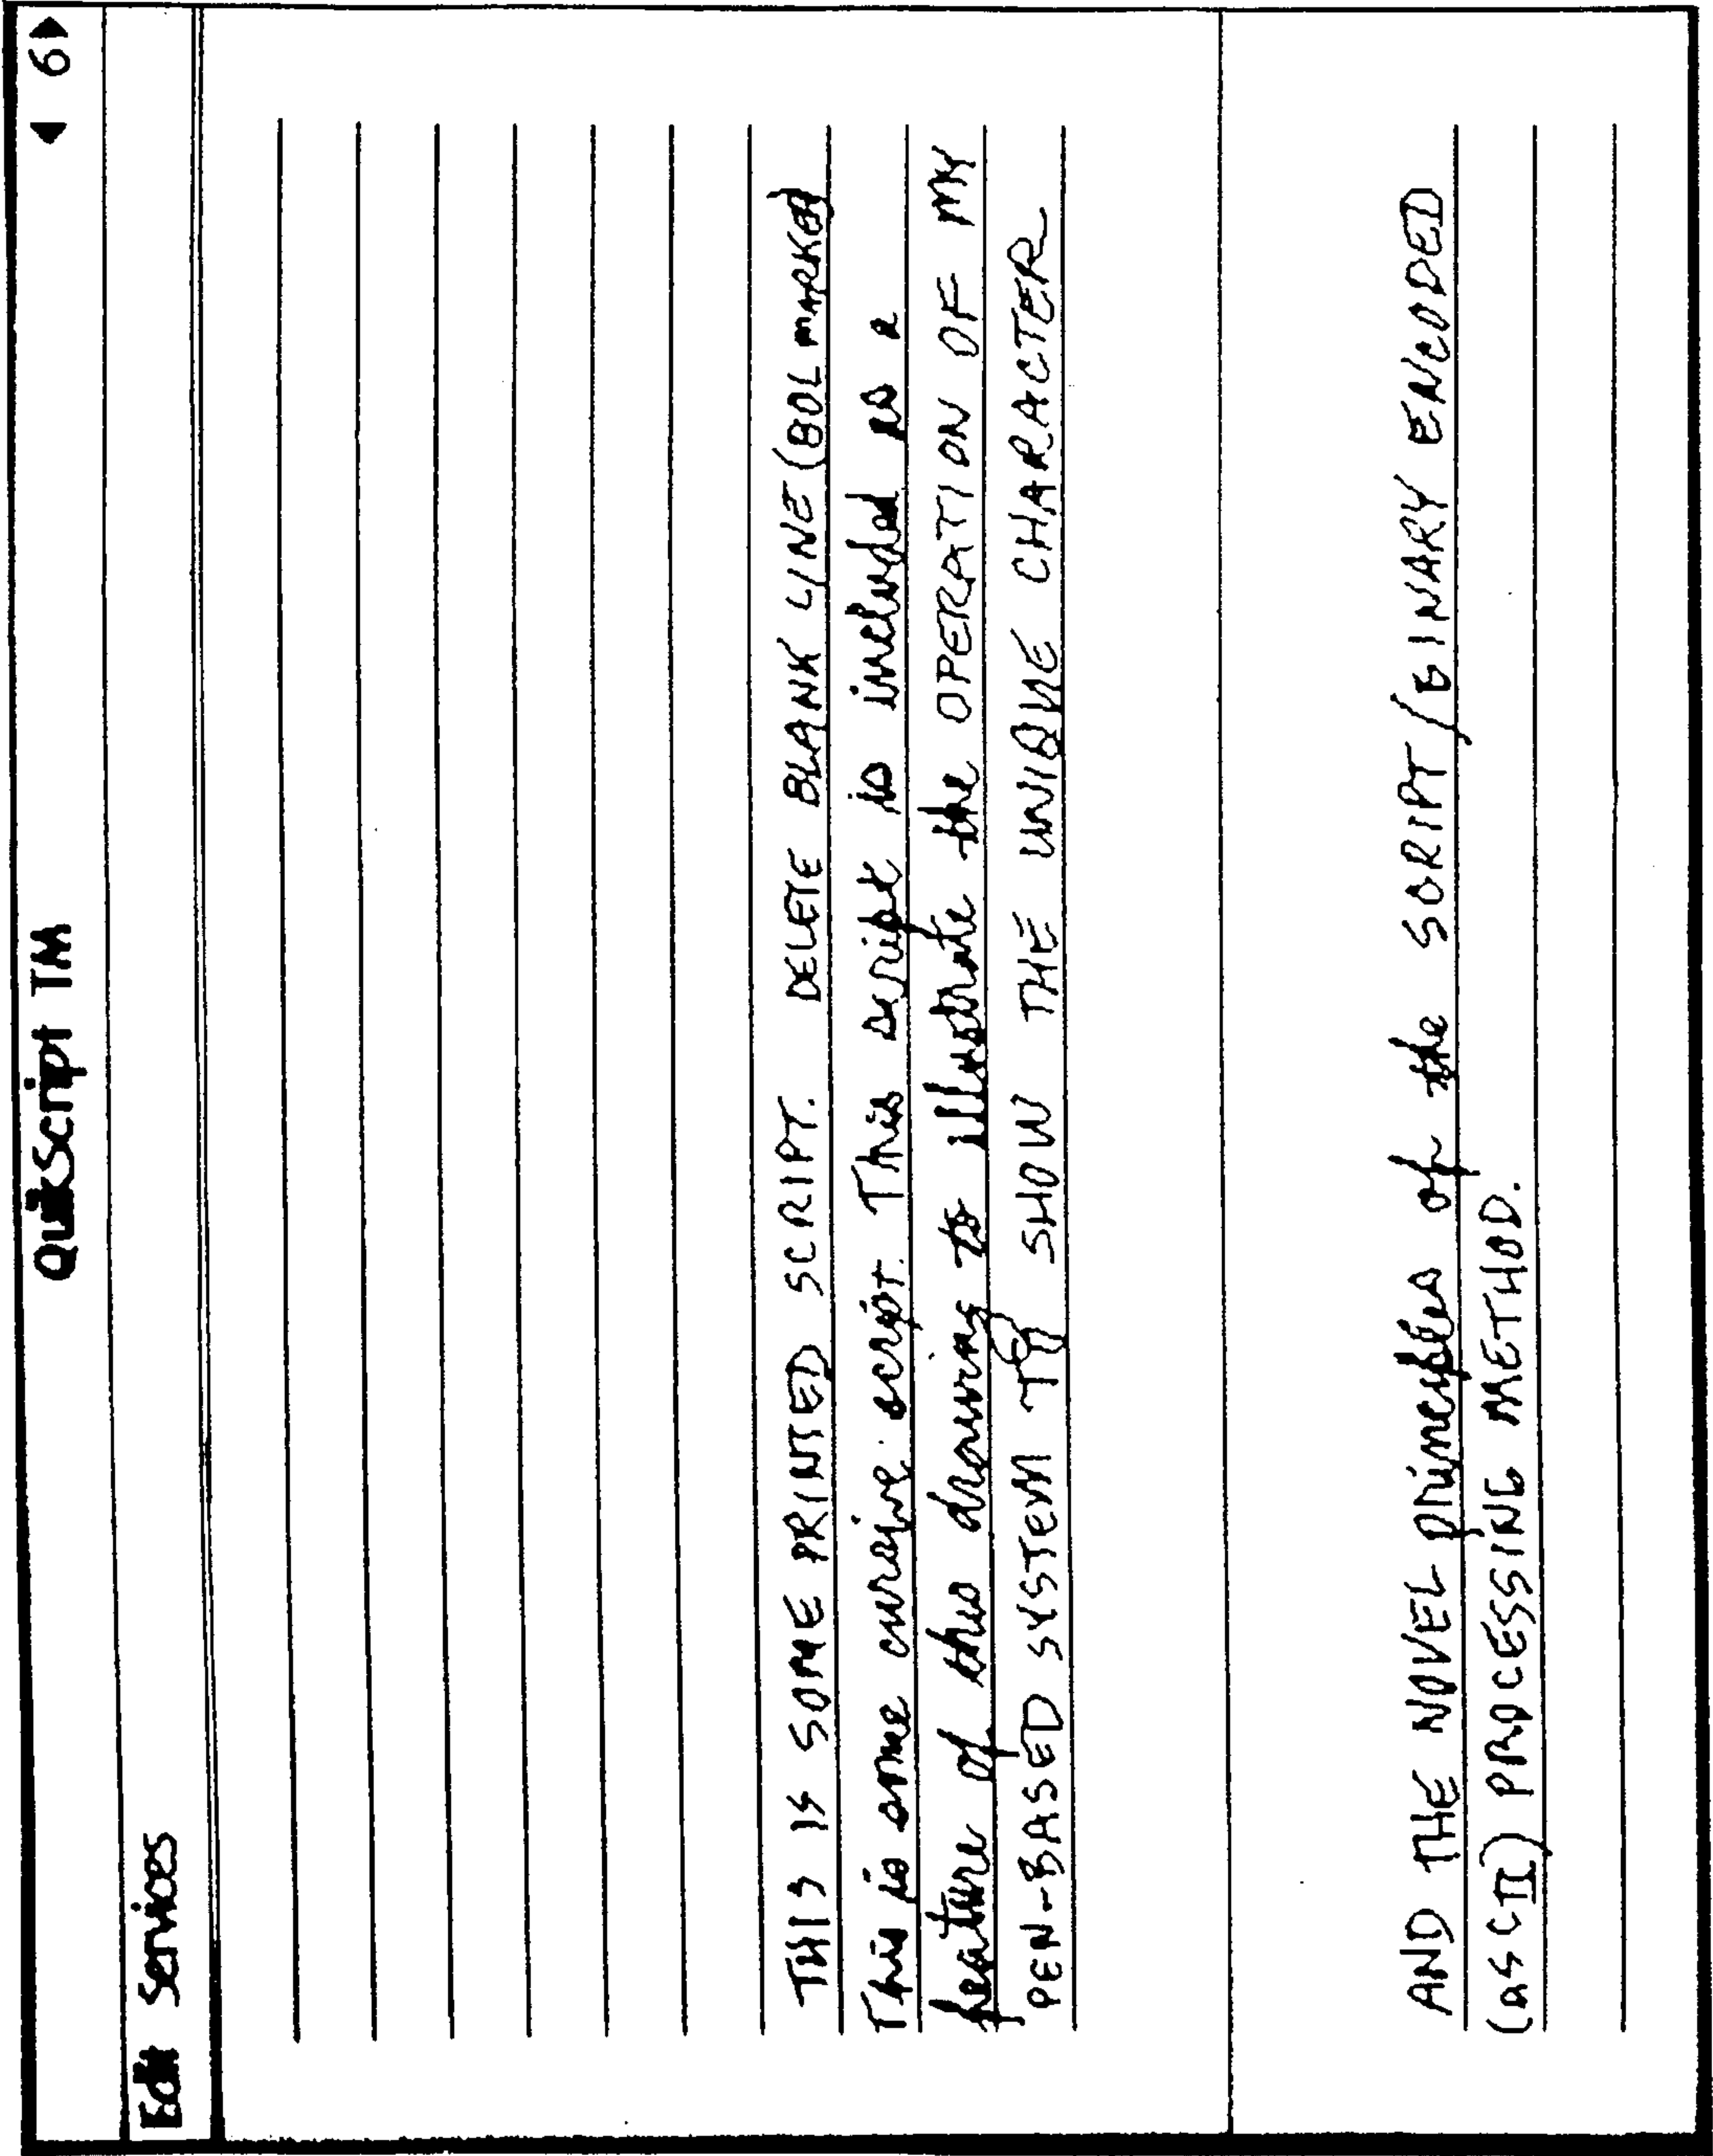 QuikScript TM ◀ 6▶
Edit Services
THIS IS SOME PRINTED SCRIPT. DELETE BLANK LINE (BOL MARKED)
This is some cursive script. This script is included as a
feature of this drawing to illustrate the OPERATION OF MY
PEN-BASED SYSTEM TO SHOW THE UNIQUE CHARACTER
AND THE NOVEL principles of the SCRIPT/BINARY ENCODED
(ASCII) PROCESSING METHOD.